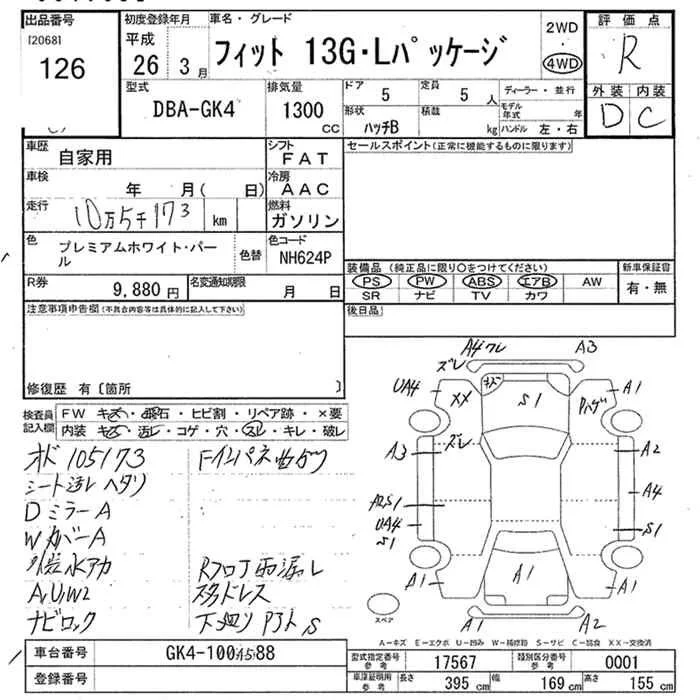 出品番号
[2068]
126
初度登録年月
平成
26 3月
車名・グレード
フィット 13G・Lパッケージ
2WD
・
4WD
評価点
R
外装 内装
D C
型式
DBA-GK4
排気量
1300 CC
ドア 5
定員 5 人
形状 ハッチB
積載 kg
ディーラー・並行
モデル年式 年
ハンドル 左・右
車歴 自家用
シフト FAT
車検 年 月( 日)
冷房 AAC
走行 10万5千173 km
燃料 ガソリン
色 プレミアムホワイト・パール
色替
色コード NH624P
R券 9,880円
名変通知期限 月 日
セールスポイント(正常に機能するものに限ります)
装備品 (純正品に限り○をつけてください)
PS PW ABS エアB AW
SR ナビ TV カワ
新車保証書
有・無
後日品
注意事項申告欄(不具合内容等は具体的に記入して下さい)
修復歴 有〔箇所 〕
検査員記入欄
FW キズ・飛石・ヒビ割・リペア跡・×要
内装 キズ・汚レ・コゲ・穴・スレ・キレ・破レ
オド 105173
シート汚レ ヘタリ
Dミラー A
Wカバー A
水アカ
A,U,W2
ナビロック
Fインパネ
雨漏レ
スタドレス
下廻リ S
A4 ワレ
ズレ
A3
UA4
XX
キズ
S1
Pハゲ
A1
A3
ズレ
A2
A4
S1
UA4
S1
A1
A1
A1
A1
A2
スペア
A-キズ E-エクボ U-凹み W-補修跡 S-サビ C-腐食 XX-交換済
車台番号 GK4-1004588
登録番号
型式指定番号 参考 17567
類別区分番号 参考 0001
車庫証明用 参考 長さ 395 cm 幅 169 cm 高さ 155 cm